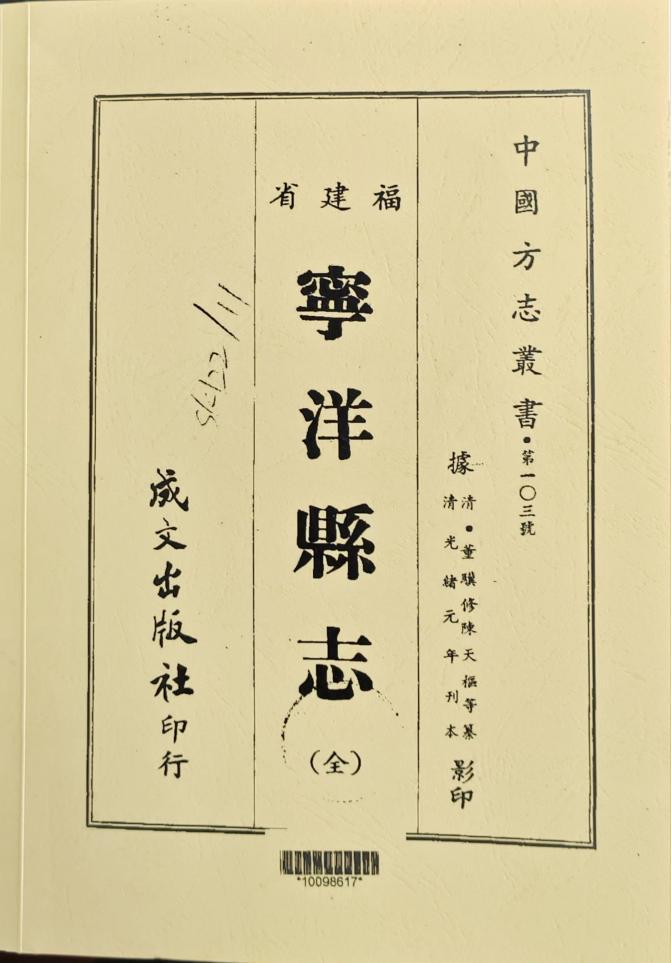 中國方志叢書·第一〇三號
據
清·董驥修陳天樞等纂
清光緒元年刊本
影印
福建省
寧洋縣志
（全）
成文出版社印行
*10098617*